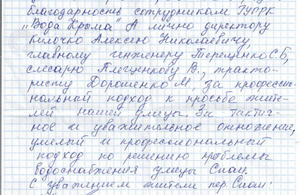 Благодарность сотрудникам ГУПРК
"Вода Крыма" А лично директору
Алексею Николаевичу
главному инженеру Терещенко С.Б,
слесарю Плещенкову В., тракто-
ристу Дорошенко М. за професси-
нальный подход к просьбе жите-
лей нашей улицы. За тактич-
ное и уважительное отношение,
умелый и профессиональный
подход по решению проблемы
водоснабжения улицы Слои.
С уважением жители пер. Слои: